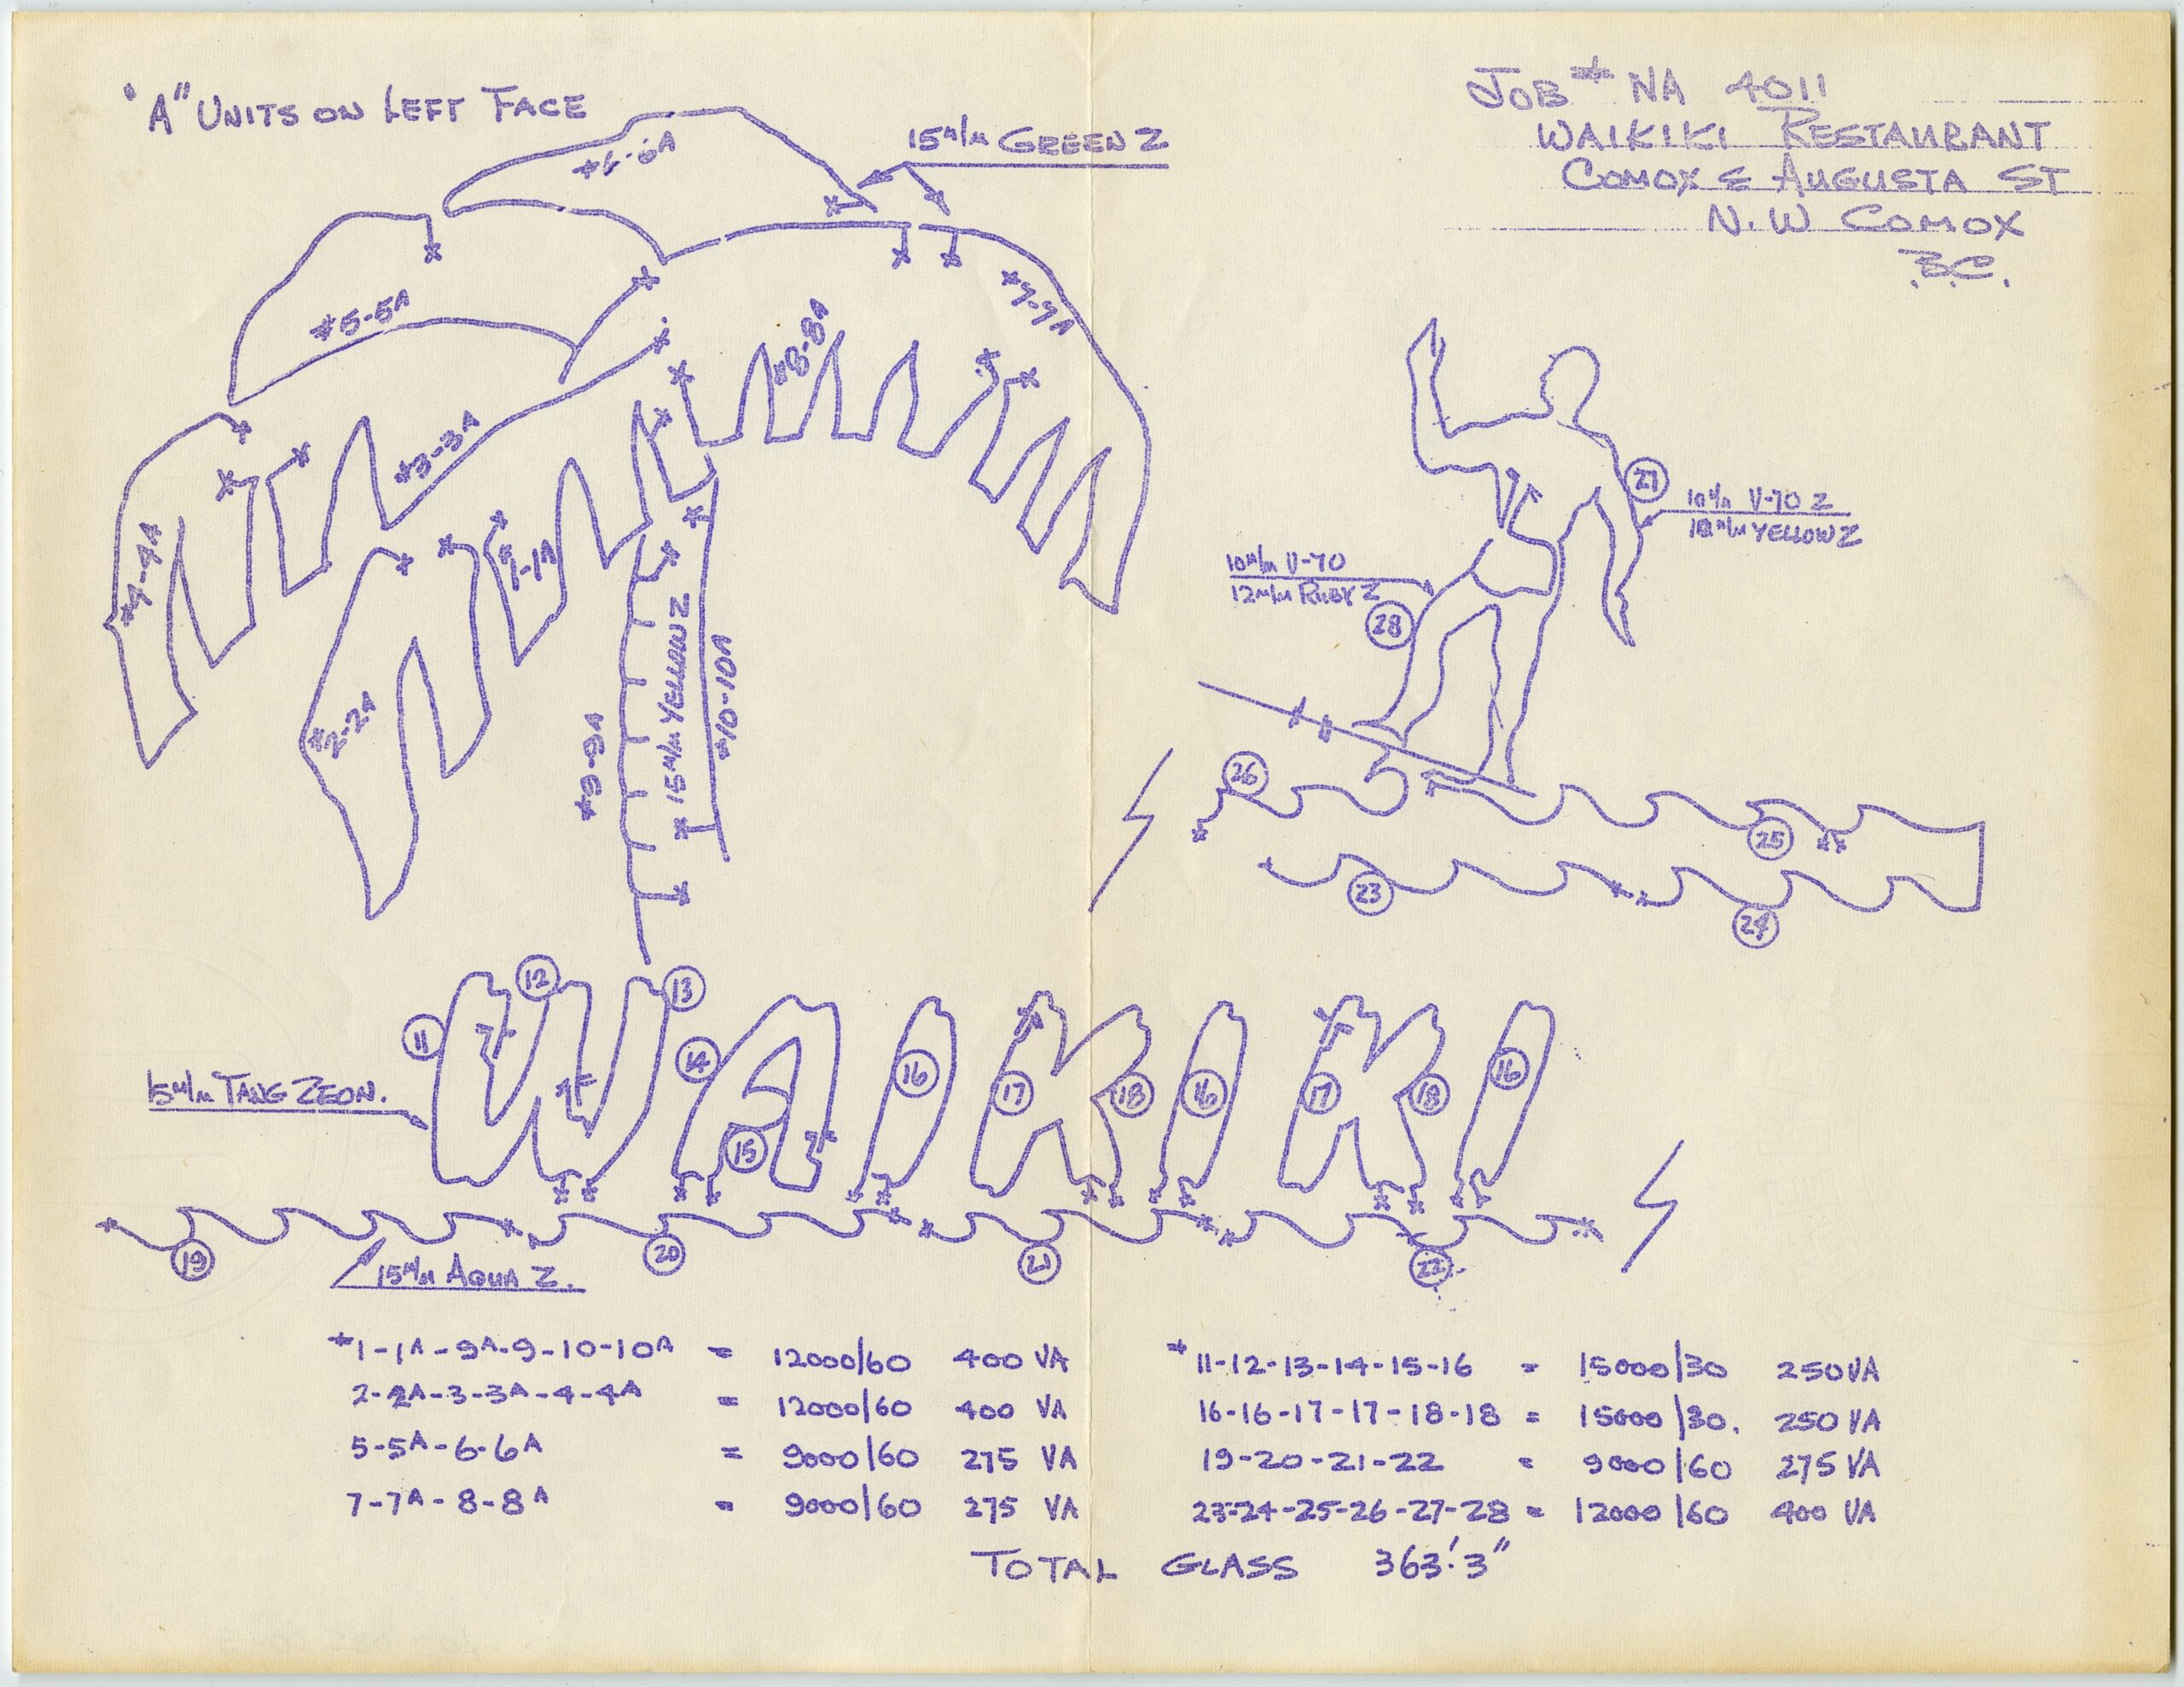 "A" UNITS ON LEFT FACE
JOB # NA 4011
WAIKIKI RESTAURANT
COMOX & AUGUSTA ST
N.W COMOX
B.C.
15 M/M GREEN Z
#6-6A
#5-5A
#7-7A
#8-8A
#3-3A
#4-4A
#1-1A
#2-2A
#9-9A
15 M/M YELLOW Z
#10-10A
27
10 M/M V-70 Z
18 M/M YELLOW Z
10 M/M V-70
12 M/M RUBY Z
28
26
25
23
24
12
13
11
14
16
17
18
16
17
18
16
15
15 M/M TANG ZEON.
19
20
21
22
15 M/M AQUA Z.
#1-1A-9A-9-10-10A = 12000/60 400 VA
2-2A-3-3A-4-4A = 12000/60 400 VA
5-5A-6-6A = 9000/60 275 VA
7-7A-8-8A = 9000/60 275 VA
#11-12-13-14-15-16 = 15000/30 250 VA
16-16-17-17-18-18 = 15000/30. 250 VA
19-20-21-22 = 9000/60 275 VA
23-24-25-26-27-28 = 12000/60 400 VA
TOTAL GLASS 363'.3"